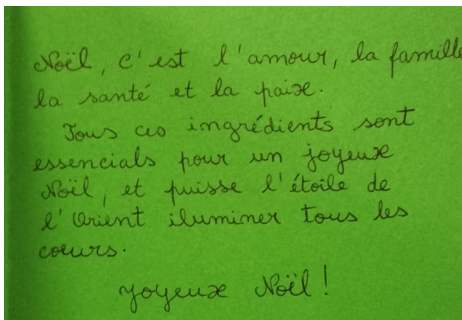 Noël, c'est l'amour, la famille
la santé et la paix.
Tous ces ingrédients sont
essencials pour un joyeux
Noël, et puisse l'étoile de
l'Orient iluminer tous les
coeurs.
Joyeux Noël !